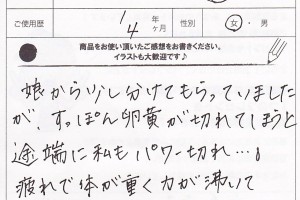 ご使用歴 1/4 年ヶ月 性別 女・男
商品をお使い頂いたご感想をお書きください。
イラストも大歓迎です♪
娘から少し分けてもらっていました
が、すっぽん卵黄が切れてしまうと
途端に私もパワー切れ…。
疲れで体が重く力が沸いて